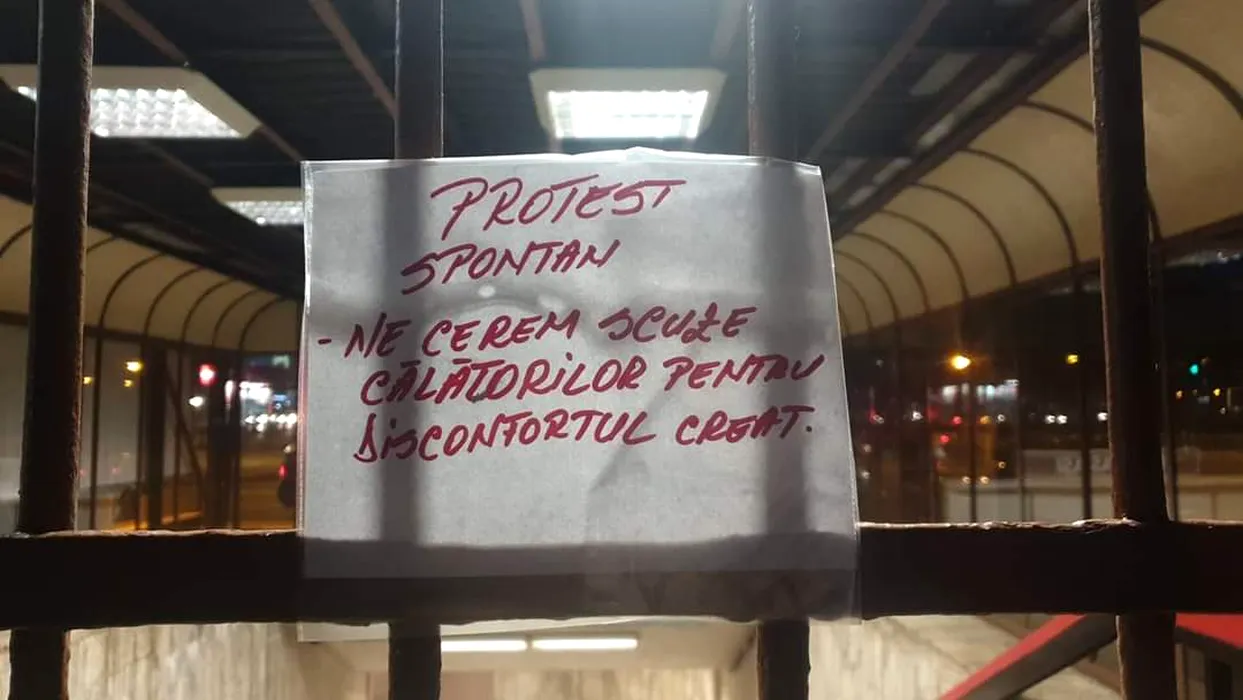 PROTEST
SPONTAN
- NE CEREM SCUZE
CĂLĂTORILOR PENTRU
DISCONFORTUL CREAT.